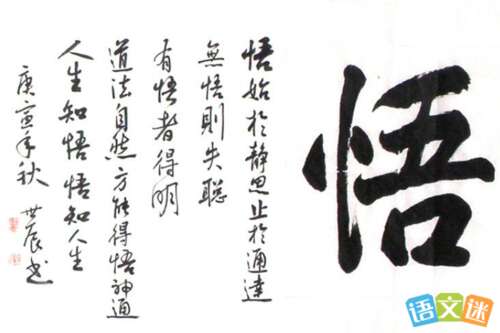 悟
悟始於靜思止於通達
無悟則失聰
有悟者得明
道法自然方能得悟神通
人生知悟悟知人生
庚寅年秋
世辰书
语文迷